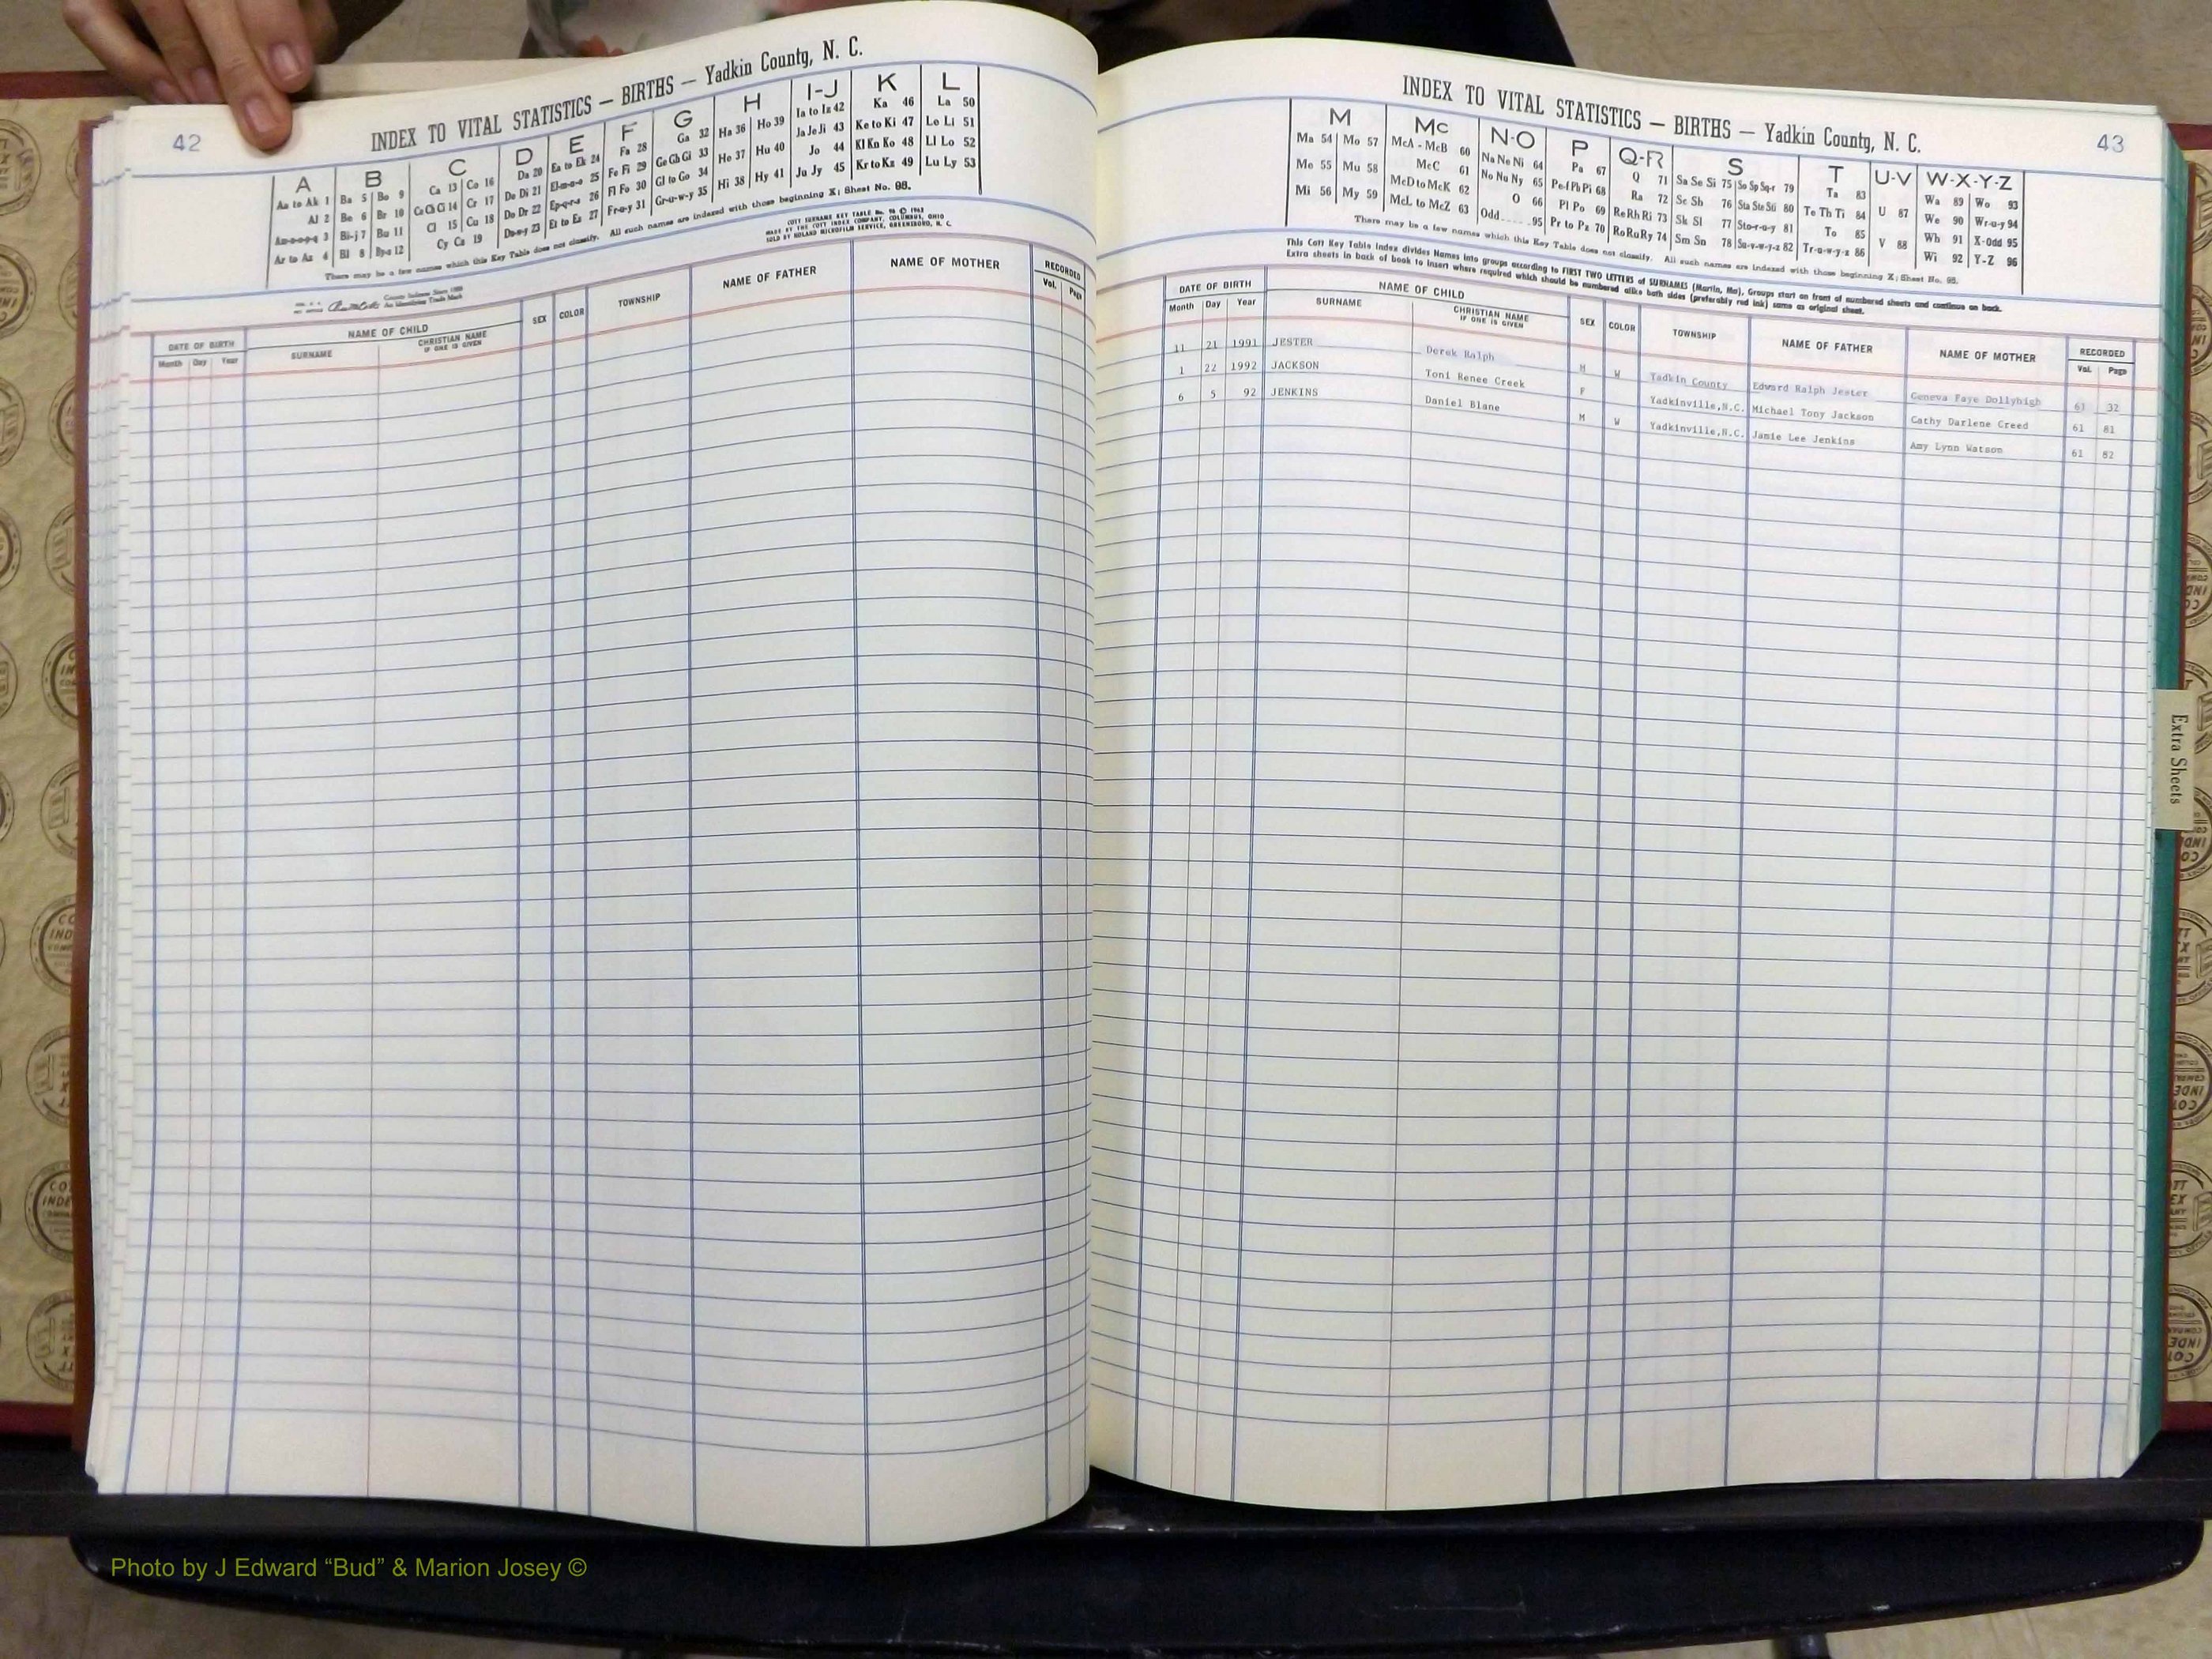 42
INDEX TO VITAL STATISTICS — BIRTHS — Yadkin County, N. C.
A B C D E F G H I-J K L
Aa to Ak 1 Ba 5 Bo 9 Ca 13 Co 16 Da 20 Ea to Ek 24 Fa 28 Ga 32 Ha 36 Ho 39 Ia to Iz 42 Ka 46 La 50
Al 2 Be 6 Br 10 Ce Ch Ci 14 Cr 17 De Di 21 El-m-n-o 25 Fe Fi 29 Ge Gh Gi 33 He 37 Hu 40 Ja Je Ji 43 Ke to Ki 47 Le Li 51
Am-n-o-p-q 3 Bi-j 7 Bu 11 Cl 15 Cu 18 Do Dr 22 Ep-q-r-s 26 Fl Fo 30 Gl to Go 34 Hi 38 Hy 41 Jo 44 Kl Kn Ko 48 Ll Lo 52
Ar to Az 4 Bl 8 By-z 12 Cy Cz 19 Du-w-y 23 Et to Ez 27 Fr-u-y 31 Gr-u-w-y 35 Ju Jy 45 Kr to Kz 49 Lu Ly 53
There may be a few names which this Key Table does not classify. All such names are indexed with those beginning X; Sheet No. 95.
COTT SURNAME KEY TABLE No. 96 © 1962
MADE BY THE COTT INDEX COMPANY, COLUMBUS, OHIO
SOLD BY ROLAND MICROFILM SERVICE, GREENSBORO, N. C.
County Indexes Since 1888
An Identifying Trade Mark
DATE OF BIRTH NAME OF CHILD SEX COLOR TOWNSHIP NAME OF FATHER NAME OF MOTHER RECORDED
Month Day Year SURNAME CHRISTIAN NAME IF ONE IS GIVEN Vol. Page
43
INDEX TO VITAL STATISTICS — BIRTHS — Yadkin County, N. C.
M Mc N-O P Q-R S T U-V W-X-Y-Z
Ma 54 Mo 57 McA - McB 60 Na Ne Ni 64 Pa 67 Q 71 Sa Se Si 75 So Sp Sq-r 79 Ta 83 U 87 Wa 89 Wo 93
Me 55 Mu 58 McC 61 No Nu Ny 65 Pe-f Ph Pi 68 Ra 72 Sc Sh 76 Sta Ste Sti 80 Te Th Ti 84 V 88 We 90 Wr-u-y 94
Mi 56 My 59 McD to McK 62 O 66 Pl Po 69 Re Rh Ri 73 Sk Sl 77 Sto-r-u-y 81 To 85 Wh 91 X-Odd 95
McL to McZ 63 Odd 95 Pr to Pz 70 Ro Ru Ry 74 Sm Sn 78 Su-v-w-y-z 82 Tr-u-w-y-z 86 Wi 92 Y-Z 96
There may be a few names which this Key Table does not classify. All such names are indexed with those beginning X; Sheet No. 95.
This Cott Key Table Index divides Names into groups according to FIRST TWO LETTERS of SURNAMES (Martin, Ma). Groups start on front of numbered sheets and continue on back.
Extra sheets in back of book to insert where required which should be numbered alike both sides (preferably red ink) same as original sheet.
DATE OF BIRTH NAME OF CHILD SEX COLOR TOWNSHIP NAME OF FATHER NAME OF MOTHER RECORDED
Month Day Year SURNAME CHRISTIAN NAME IF ONE IS GIVEN Vol. Page
11 21 1991 JESTER Derek Ralph M W Yadkin County Edward Ralph Jester Geneva Faye Dollyhigh 61 32
1 22 1992 JACKSON Toni Renee Creek F Yadkinville,N.C. Michael Tony Jackson Cathy Darlene Creed 61 81
6 5 92 JENKINS Daniel Blane M W Yadkinville,N.C. Jamie Lee Jenkins Amy Lynn Watson 61 82
Extra Sheets
Photo by J Edward “Bud” & Marion Josey ©